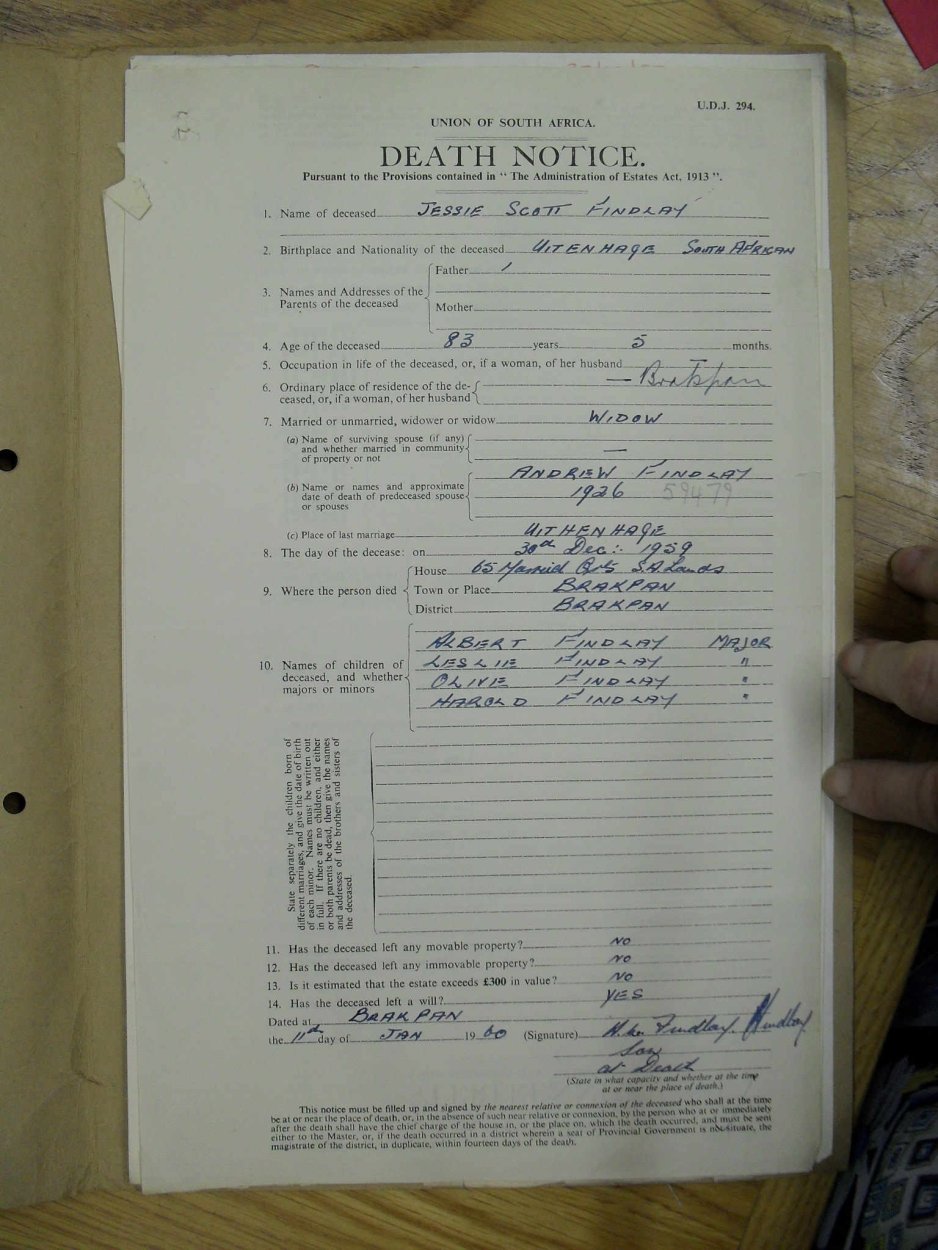 U.D.J. 294.
UNION OF SOUTH AFRICA.
DEATH NOTICE.
Pursuant to the Provisions contained in " The Administration of Estates Act, 1913 ".
1. Name of deceased JESSIE SCOTT FINDLAY
2. Birthplace and Nationality of the deceased UITENHAGE SOUTH AFRICAN
3. Names and Addresses of the Parents of the deceased
Father
Mother
4. Age of the deceased 83 years 5 months.
5. Occupation in life of the deceased, or, if a woman, of her husband
6. Ordinary place of residence of the de- — Brakpan
ceased, or, if a woman, of her husband
7. Married or unmarried, widower or widow WIDOW
(a) Name of surviving spouse (if any)
and whether married in community —
of property or not
ANDREW FINDLAY
(b) Name or names and approximate
date of death of predeceased spouse 1926 59479
or spouses
(c) Place of last marriage UITHENHAGE
8. The day of the decease: on 30th Dec: 1959
9. Where the person died
House 65 Married Qrts S.A. Lands
Town or Place BRAKPAN
District BRAKPAN
10. Names of children of
deceased, and whether
majors or minors
ALBERT FINDLAY MAJOR
LESLIE FINDLAY "
OLIVE FINDLAY "
HAROLD FINDLAY "
State separately the children born of
different marriages, and give the date of birth
of each minor. Names must be written out
in full. If there are no children, and either
or both parents be dead, then give the names
and addresses of the brothers and sisters of
the deceased.
11. Has the deceased left any movable property? NO
12. Has the deceased left any immovable property? NO
13. Is it estimated that the estate exceeds £300 in value? NO
14. Has the deceased left a will? YES
Dated at BRAKPAN
the 11th day of JAN 1960 (Signature) Findlay. Findlay
Son
at Death
(State in what capacity and whether at the time
at or near the place of death.)
This notice must be filled up and signed by the nearest relative or connexion of the deceased who shall at the time
be at or near the place of death, or, in the absence of such near relative or connexion, by the person who at or immediately
after the death shall have the chief charge of the house in, or the place on, which the death occurred, and must be sent
either to the Master, or, if the death occurred in a district wherein a seat of Provincial Government is not situate, the
magistrate of the district, in duplicate, within fourteen days of the death.